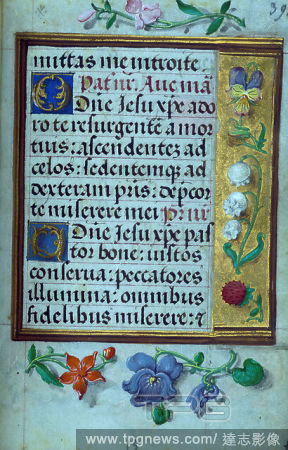 39
mittas me introite.
Pat̄nr̄. Aue mā
Dn̄e Jesu xp̄e ado
ro te resurgente a mor
tuis: ascendentez ad
celos: sedentemqꝫ ad
dexteram pr̄is: dep̄cor
te miserere mei pr̄nr̄
Dn̄e Jesu xp̄e pas
tor bone: iustos
conserua: peccatores
illumina: omnibus
fidelibus miserere: ⁊
www.tpgnews.com/ 達志影像